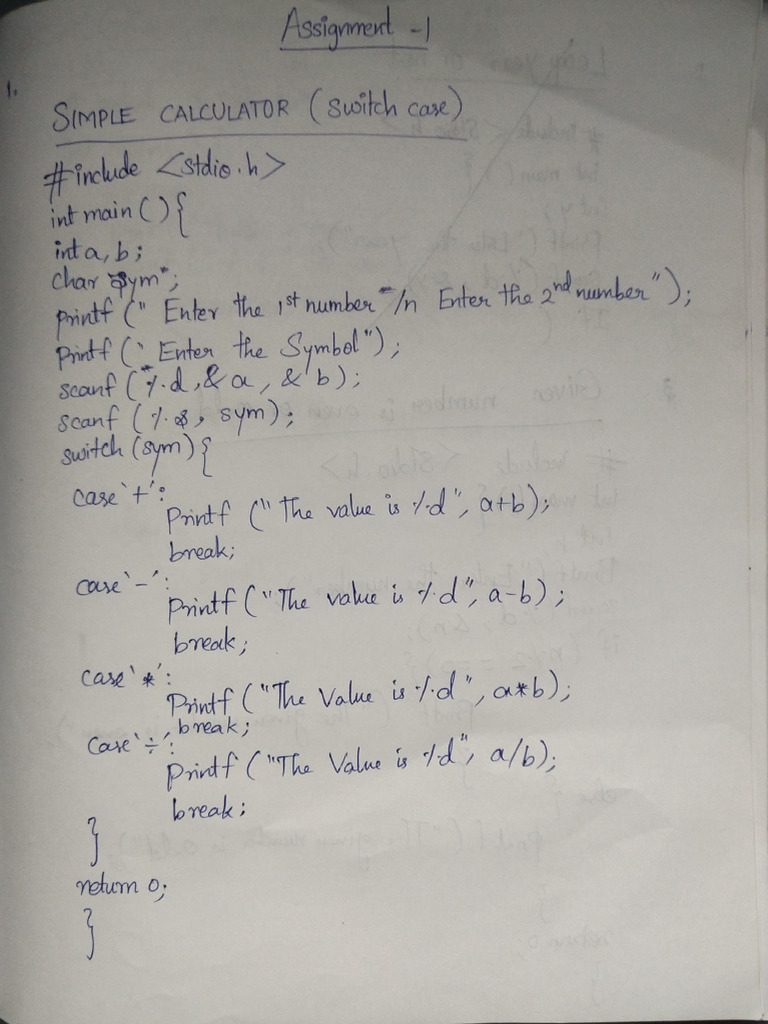 Assignment -1
1.
SIMPLE CALCULATOR (Switch case)
#include <stdio.h>
int main () {
int a, b;
char sym";
printf (" Enter the 1st number /n Enter the 2nd number");
printf (" Enter the Symbol");
scanf ("%d, & a, & b);
scanf (%s, sym);
switch (sym) {
case '+':
Printf ("The value is %d", a+b);
break;
case '-':
Printf ("The value is %d", a-b);
break;
case '*':
Printf ("The Value is %d", a*b);
break;
Case '÷':
Printf ("The Value is %d", a/b);
break;
}
return 0;
}